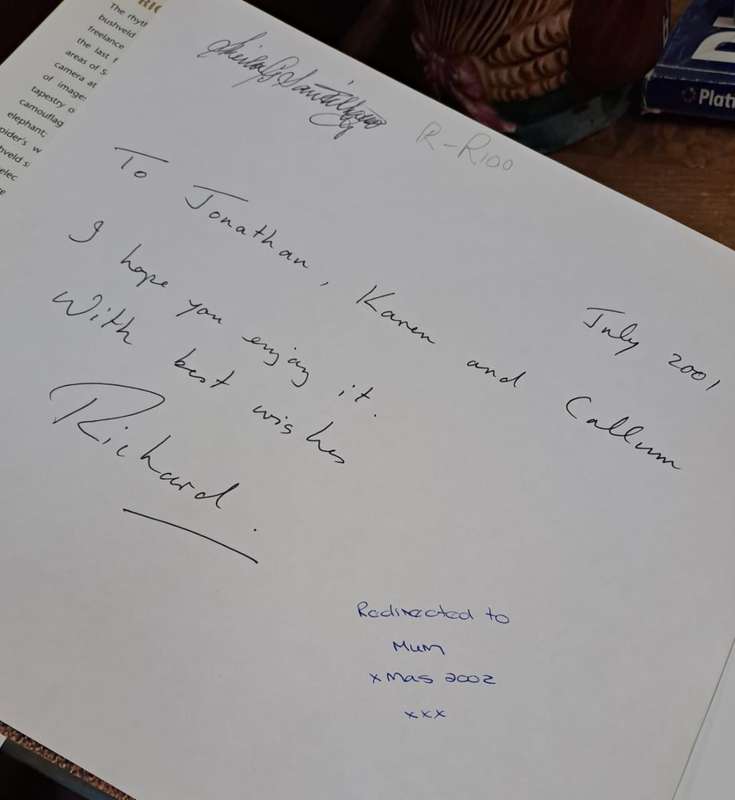 The rhyt
bushveld
freelance
the last f
areas of S
camera at
of image
tapestry o
camouflag
elephant,
pider's w
hveld s
elec
re
R-R100
Plat
To Jonathan, Karen and Callum
July 2001
I hope you enjoy it.
With best wishes
Richard.
Redirected to
Mum
xmas 2002
xxx